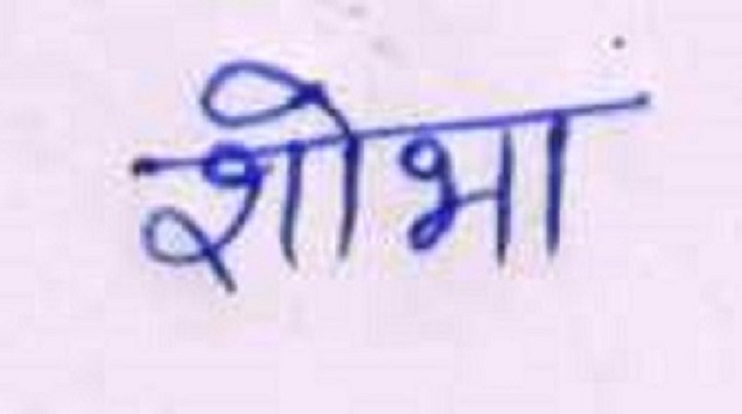 शोभा